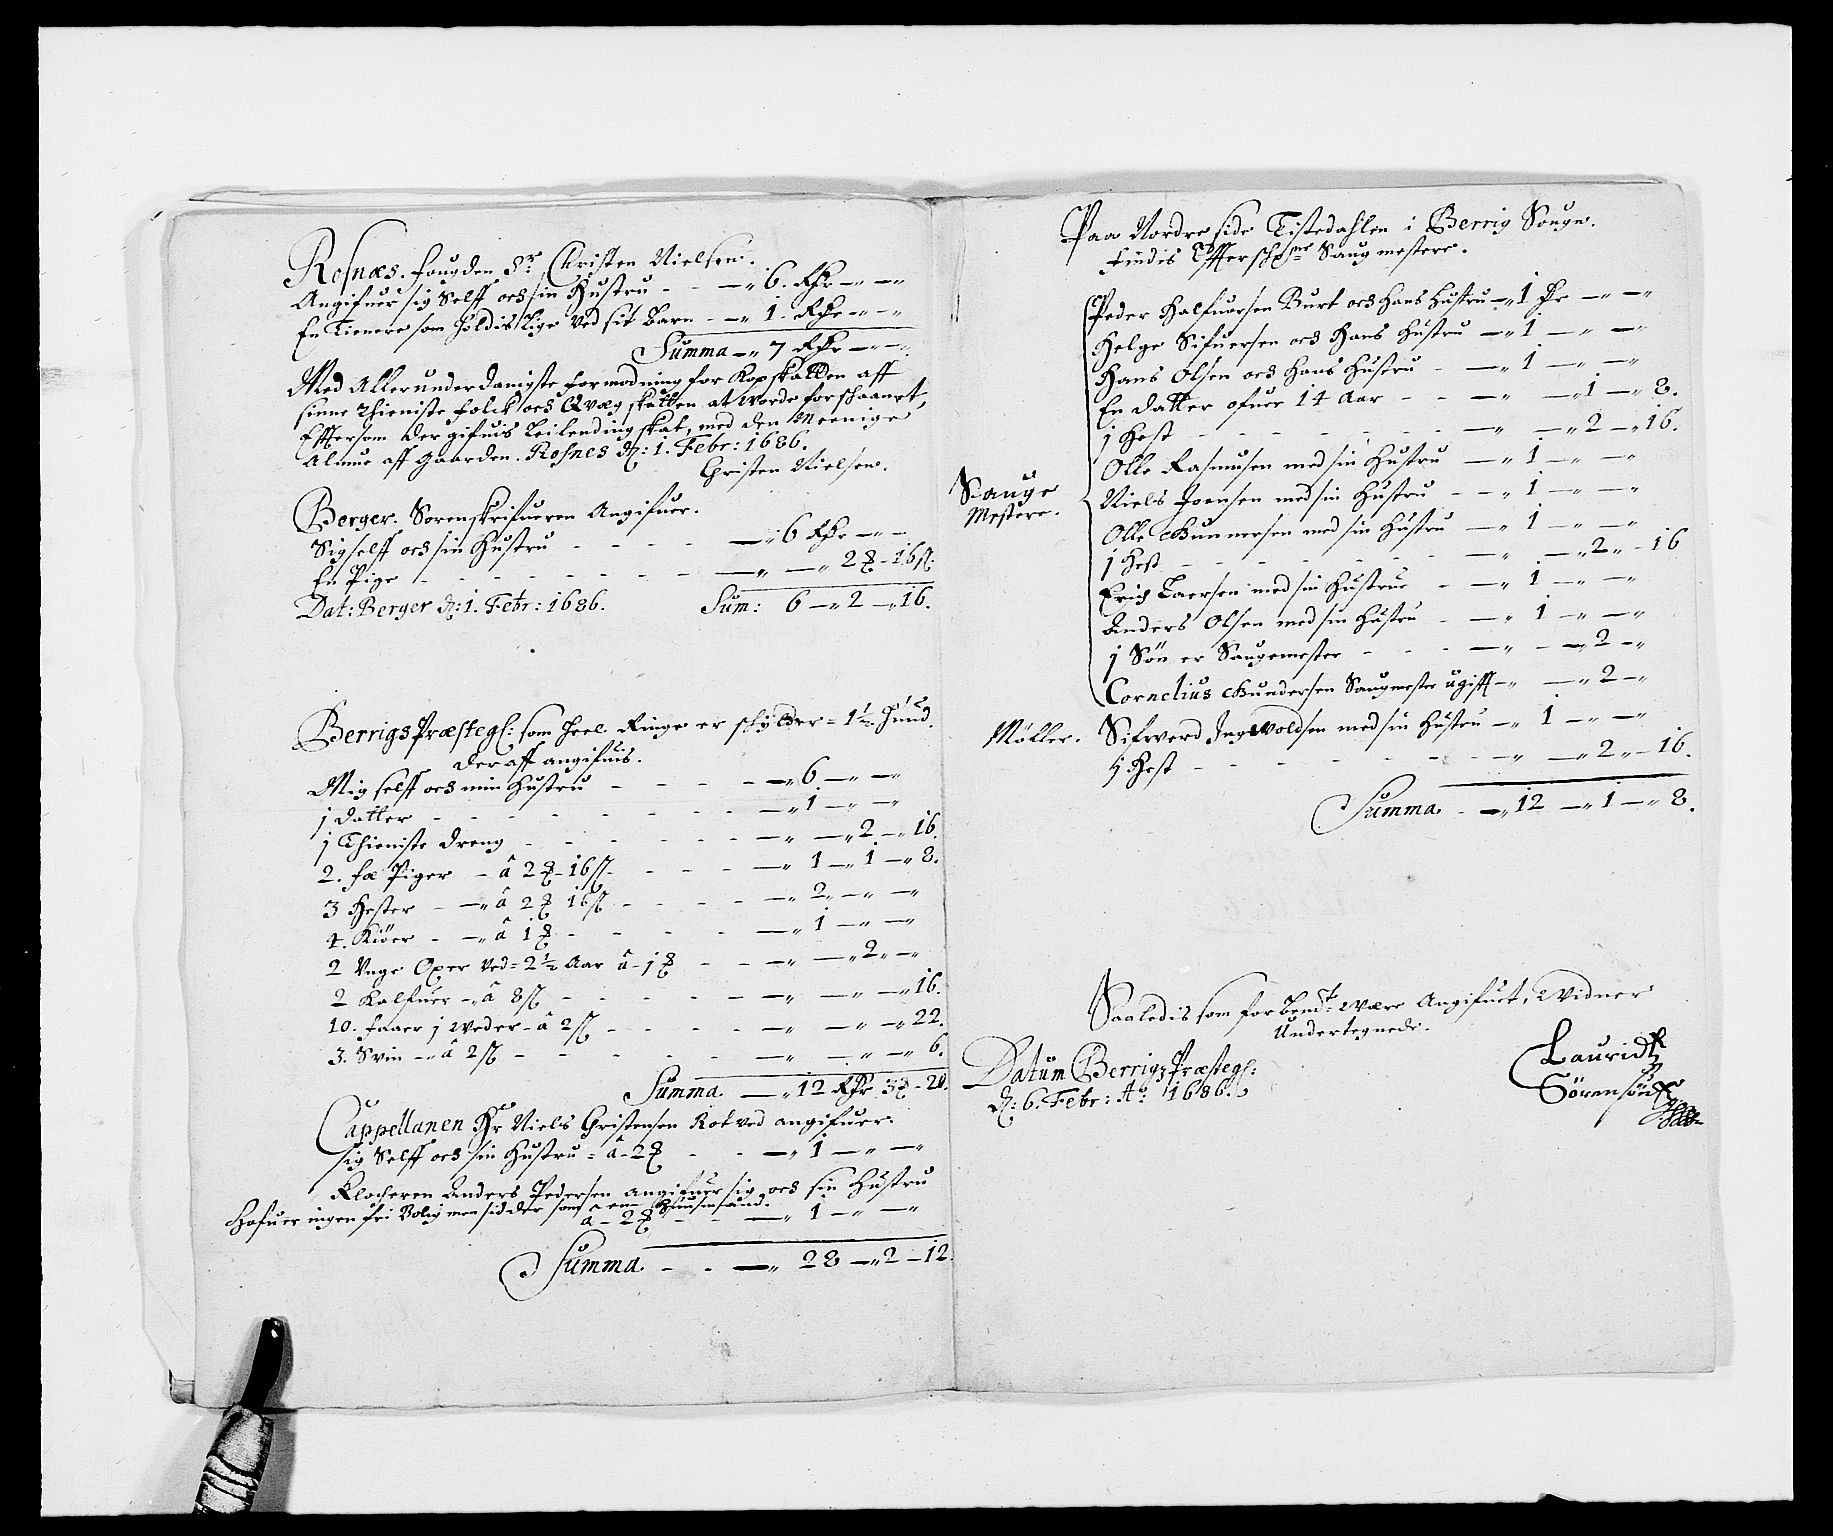 Rosnæs. fougden Sr. Christen Nielsen.
Angifuer sig Selff och sin Hustru - - -" 6. Rdr -" -"
En Tienere som holdis lige ved sit Barn - -" 1. Rdr -" -"
Summa -" 7 Rdr -" -"
Med Allerunderdanigste formodning for Kopskatten aff
sinne thieniste folck och Qvæg skatten at worde forschaanet,
Effersom der gifuis Leilending skat, med den Meenige
Almue aff Gaarden. Rosnes d: 1. Febr: 1686.
Christen Nielsen.
Berger. Sorenskrifueren Angifuer.
Sig selff och sin Hustru - - - - -" 6 Rdr -" -
En Pige - - - - - - - -" -" 2 ß - 16 sl:
Dat: Berger d: 1. Febr: 1686. Sum: 6 -" 2 -" 16.
Berrigs Præstegl: som heel Ringe er schylder = 1½ hund.
der aff angifuis.
Mig selff och min Hustru - - - - -" 6 -" -"
1 datter - - - - - - - -" 1 -" -"
1 Thieniste dreng - - - - - -" -" 2 -" 16.
2. fæ Piger - â 2 ß - 16 sl - - - -" 1 -" 1 -" 8.
3 Hester - -" â 2 ß 16 sl - - - -" 2 -" -"
4. Kiöer - -" â 1 ß - - - - -" 1 -" -"
2 Unge Oxer ved = 2½ Aar â - 1 ß - - -" -" 2 -"
2 Kalfuer -" â 8 sl - - - - -" -" -" 16.
10. faaer 1 weder - â 2 sl - - - - -" -" -" 22.
3. Svin -" â 2 sl - - - - - -" -" -" 6.
Summa -" 12 Rdr 3 ß - 20.
Cappellanen Hr Niels Christensen Rotved angifuer.
sig Selff och sin Hustru = â - 2 ß - - -" 1 -" -"
Klocheren Anders Pedersen angifuer sig och sin Hustru
Hafuer ingen fri Bolig men sidder som en Huusmand.
â - 2 ß - - -" 1 -" -"
Summa - - -" 28 -" 2 - 12.
Paa Nordre side Tistedahlen i Berrig Sougn.
findis Effterschrne Saugmestere.
Peder Halfuorsen Burt och hans Hustru -" 1 Rr -" -"
Helge Sifuersen och Hans Hustru -" 1 -" -"
Hans Olsen och Hans Hustru - -" 1 -" -"
En datter ofuer 14 Aar - - -" -" 1 -" 8.
1 Hest - - - - - - -" -" 2 -" 16.
Olle Rasmusen med sin Hustru -" 1 -" -"
Sauge
Mestere.
Niels Joensen med sin Hustru - -" 1 -" -"
Olle Gunnersen med sin Hustru -" 1 -" -"
1 Hest - - - - - - -" -" 2 -" 16
Erich Laersen med sin Hustrue - -" 1 -" -"
Anders Olsen med sin Hustru - -" 1 -" -"
1 Sön er Saugemester - - - -" -" 2 -"
Cornelius Gundersen Saugmester ugifft -" -" 2 -"
Møller. Sifwerd Ingwoldsen med sin Hustru -" 1 -" -"
1 Hest - - - - - - -" -" 2 -" 16.
Summa - -" 12 -" 1 -" 8.
Saaledis som forbemt. være Angifuet, Widner
Undertegnede.
Datum Berrigs Præstegl:
d: 6. Febr: Ao: 1686.
Lauridtz
Sörensön